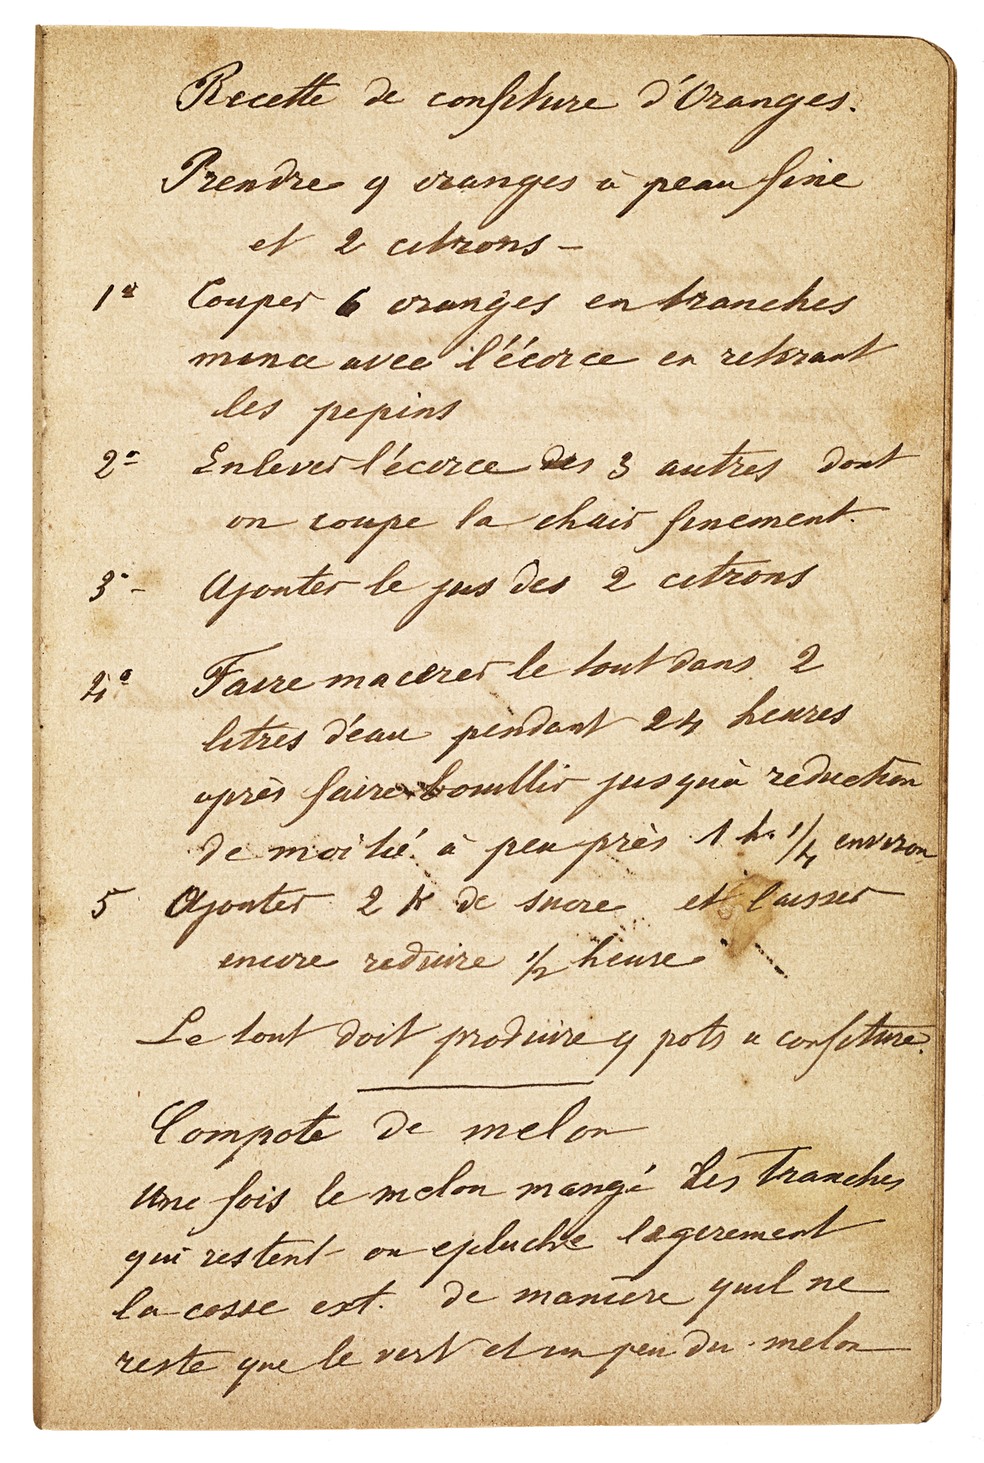 Recette de confiture d'Oranges.
Prendre 9 oranges à peau fine
et 2 citrons -
1º Couper 6 oranges en tranches
mince avec l'écorce en retirant
les pepins
2º Enlever l'écorce des 3 autres dont
on coupe la chair finement.
3º - Ajouter le jus des 2 citrons
4º Faire macerer le tout dans 2
litres d'eau pendant 24 heures
après faire bouillir jusqu'à reduction
de moitié à peu près 1 h. 1/4 environ
5 Ajouter 2 k de sucre et laisser
encore reduire 1/2 heure
Le tout doit produire 9 pots a confiture.
Compote de melon
Une fois le melon mangé les tranches
qui restent on epluche legerement
la cosse ext. de maniere quil ne
reste que le vert et un peu du melon